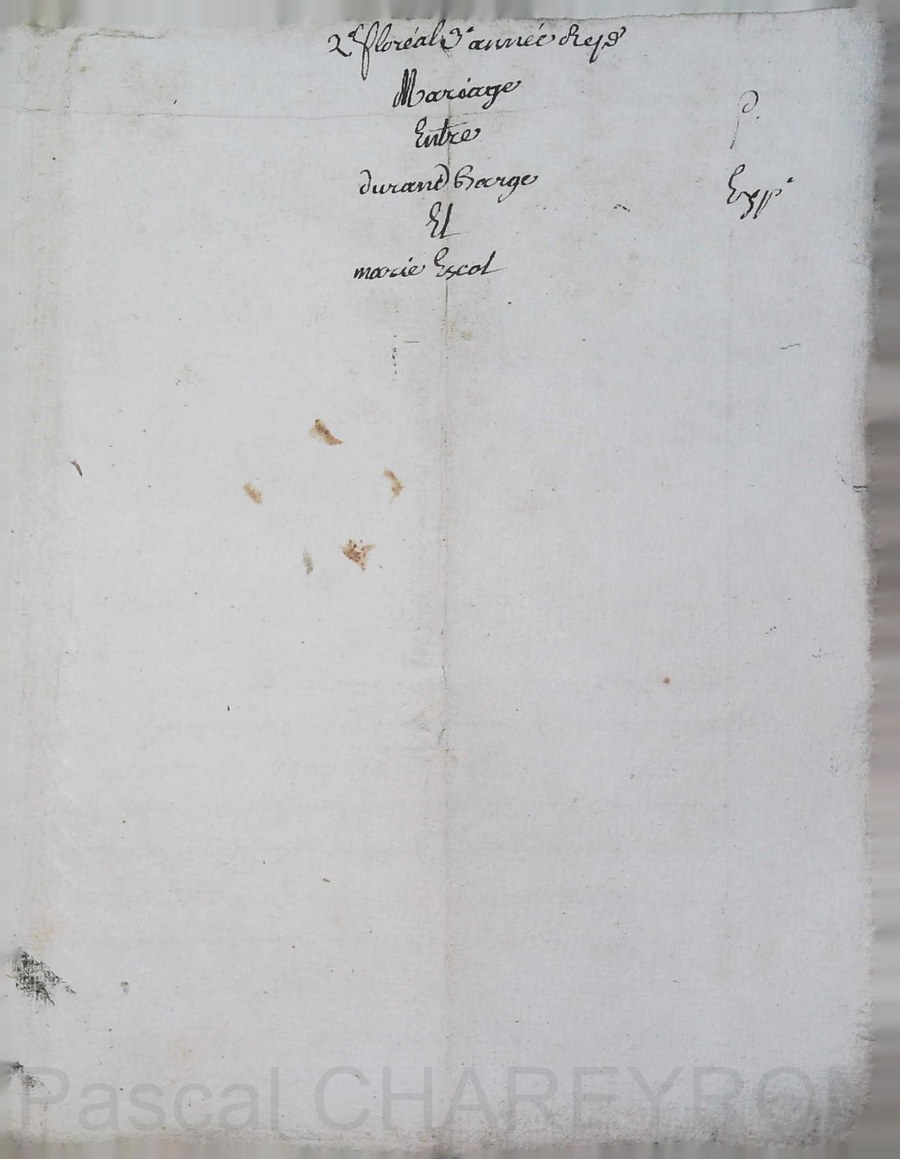 2e floréal 3e année Rep
Mariage
Entre
durand Barge
Et
marie Escol
p.
Exp
Pascal CHAREYRON